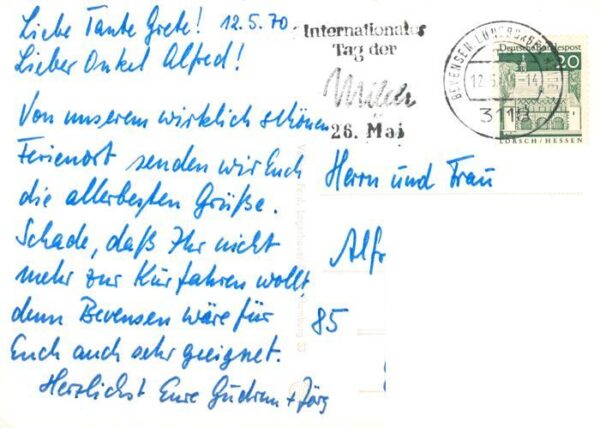 Liebe Tante Grete! 12.5.70
Lieber Onkel Alfred!
Von unserem wirklich schönen
Ferienort senden wir Euch
die allerbesten Grüße.
Schade, daß Ihr nicht
mehr zur Kur fahren wollt,
denn Bevensen wäre für
Euch auch sehr geeignet.
Herzlichst Eure Gudrun + Jörg
Internationaler
Tag der
Milch
26. Mai
BEVENSEN LÜNEBURGER HEIDE
12.5.70-14
3118
Deutsche Bundespost
20
LORSCH/HESSEN
Herrn und Frau
Alfr
85